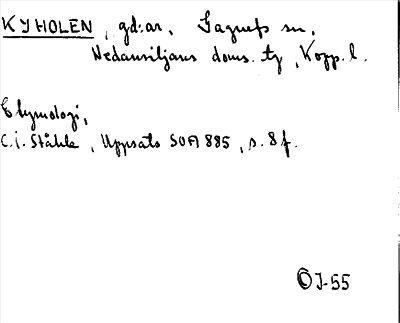 KYHOLEN, gd:ar, Gagnefs sn,
Nedansiljans doms. tg, Kopp. l.
Etymologi,
C.I. Ståhle, Uppsats SOFI 885, s. 8 f.
J-55